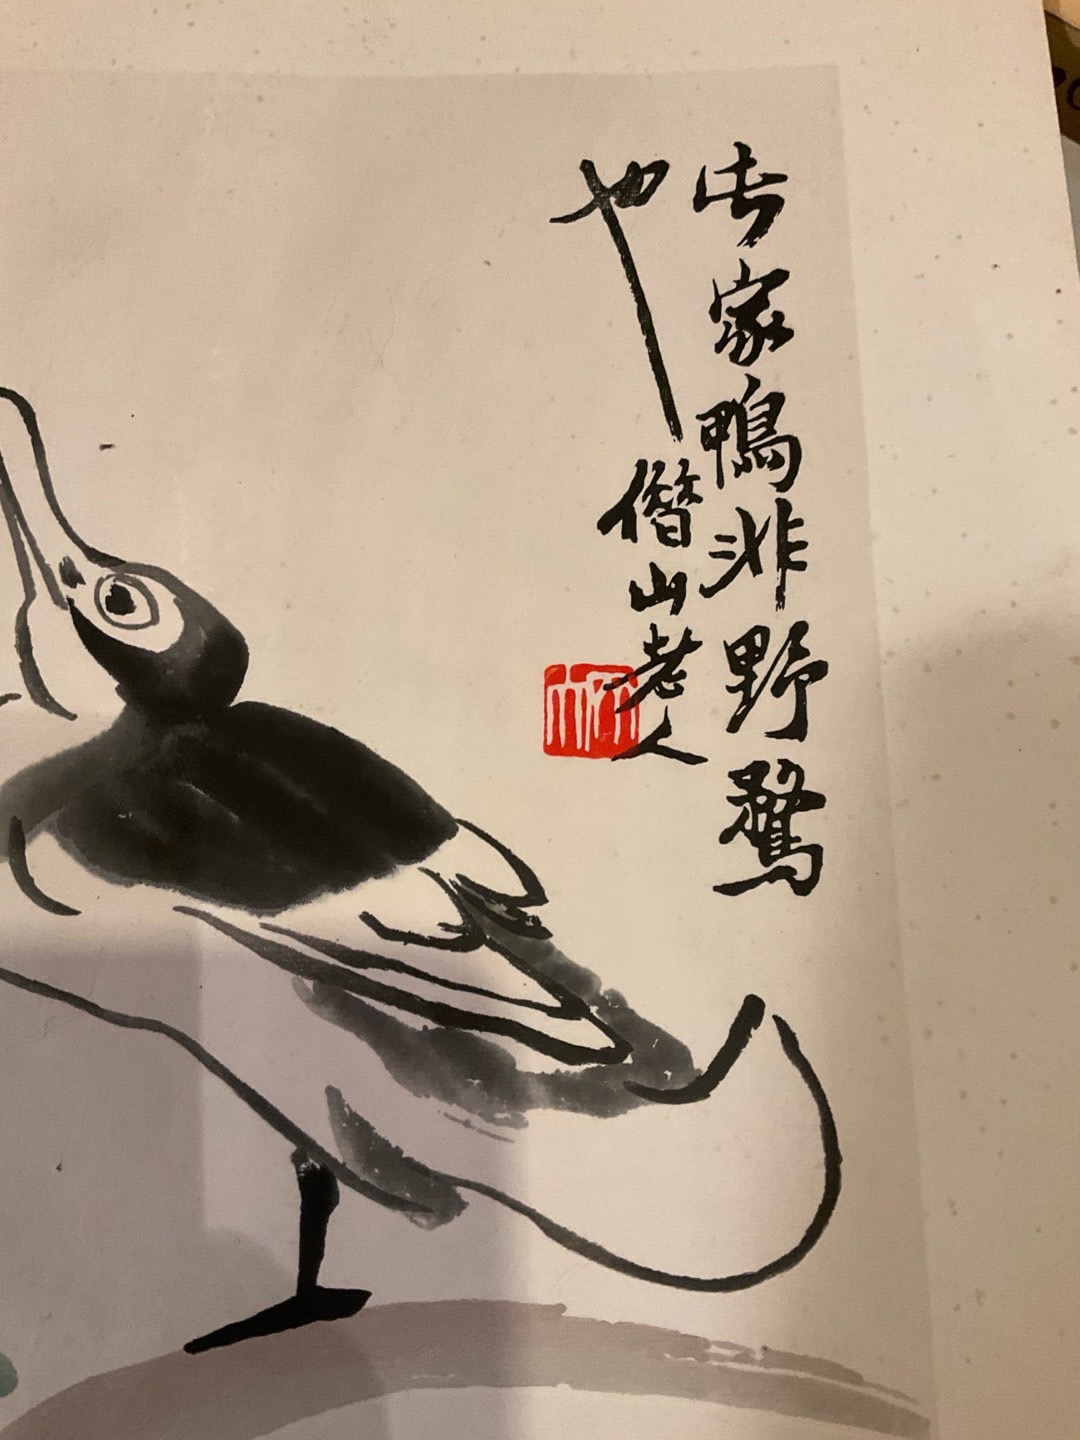 此家鴨非野鶩
也
借山老人